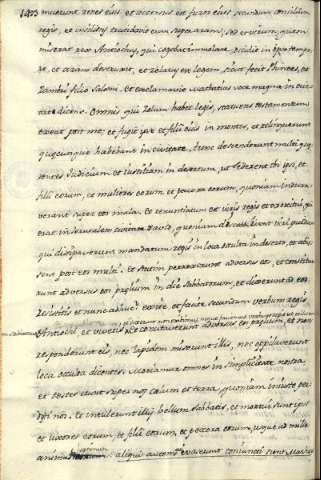 1403
renes eius, et accensus est furor eius secundum
regis, et insiliens trucidavit eum super aram, sed et virum, quem
miserat rex Antiochus, qui cogebat immolare, occidit in ipso tempo-
re, et aram destruxit, et zelatus est legem, sicut fecit Phinees,
Zambri filio Salomi. et exclamavit Mathatias voce magna in civi-
tate dicens. Omnis qui zelum habet legis, statuens testamentum
exeat post me; et fugit ipse et filii eius in montes, et reliquerunt
quaecunque habebant in civitate. tunc descenderunt multi que-
rentes Judicium et iustitiam in desertum, ut sederent ibi ipsi, et
filii eorum, et mulieres eorum et pecora eorum, quoniam inunda-
verant super eos mala. et renuntiatum est viris regis et exercitui, qui
erat in Jerusalem civitate David, quoniam viri quidam
qui dissipaverunt mandatum regis in loca occulta in deserto, et abis-
sent post eos multi. et statim perrexerunt adversus eos, et constitue-
runt adversus eos prelium in die Sabbatorum, et dixerunt ad eos
resistitis et nunc adhuc? exite, et facite secundum verbum regis
Antiochi, et vivetis. et concitaverunt adversus eos prelium, et non
responderunt eis, nec lapidem miserunt illis, nec oppilaverunt
loca occulta dicentes. moriamur omnes in simplicitate nostra
et testes erunt super nos caelum et terra, quoniam iniuste per-
ditis nos. et intulerunt illis bellum sabbatis, et mortui sunt ipsi
et uxores eorum, et filii eorum, et pecora eorum, usque ad mille
animas hominum aliqui autem evaserunt coniuncti sunt